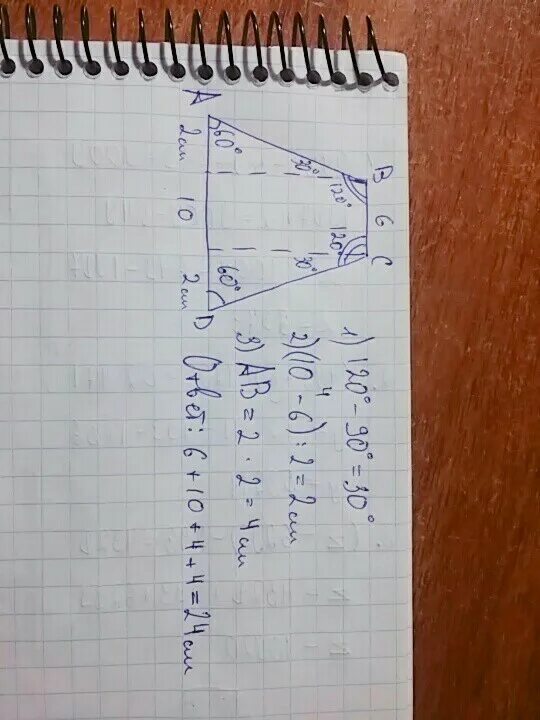 A
B
C
D
6
10
2см
2см
60°
60°
30°
30°
120°
120°
1) 120° - 90° = 30°
4
2) (10 - 6) : 2 = 2см
3) AB = 2 · 2 = 4см
Ответ: 6 + 10 + 4 + 4 = 24см